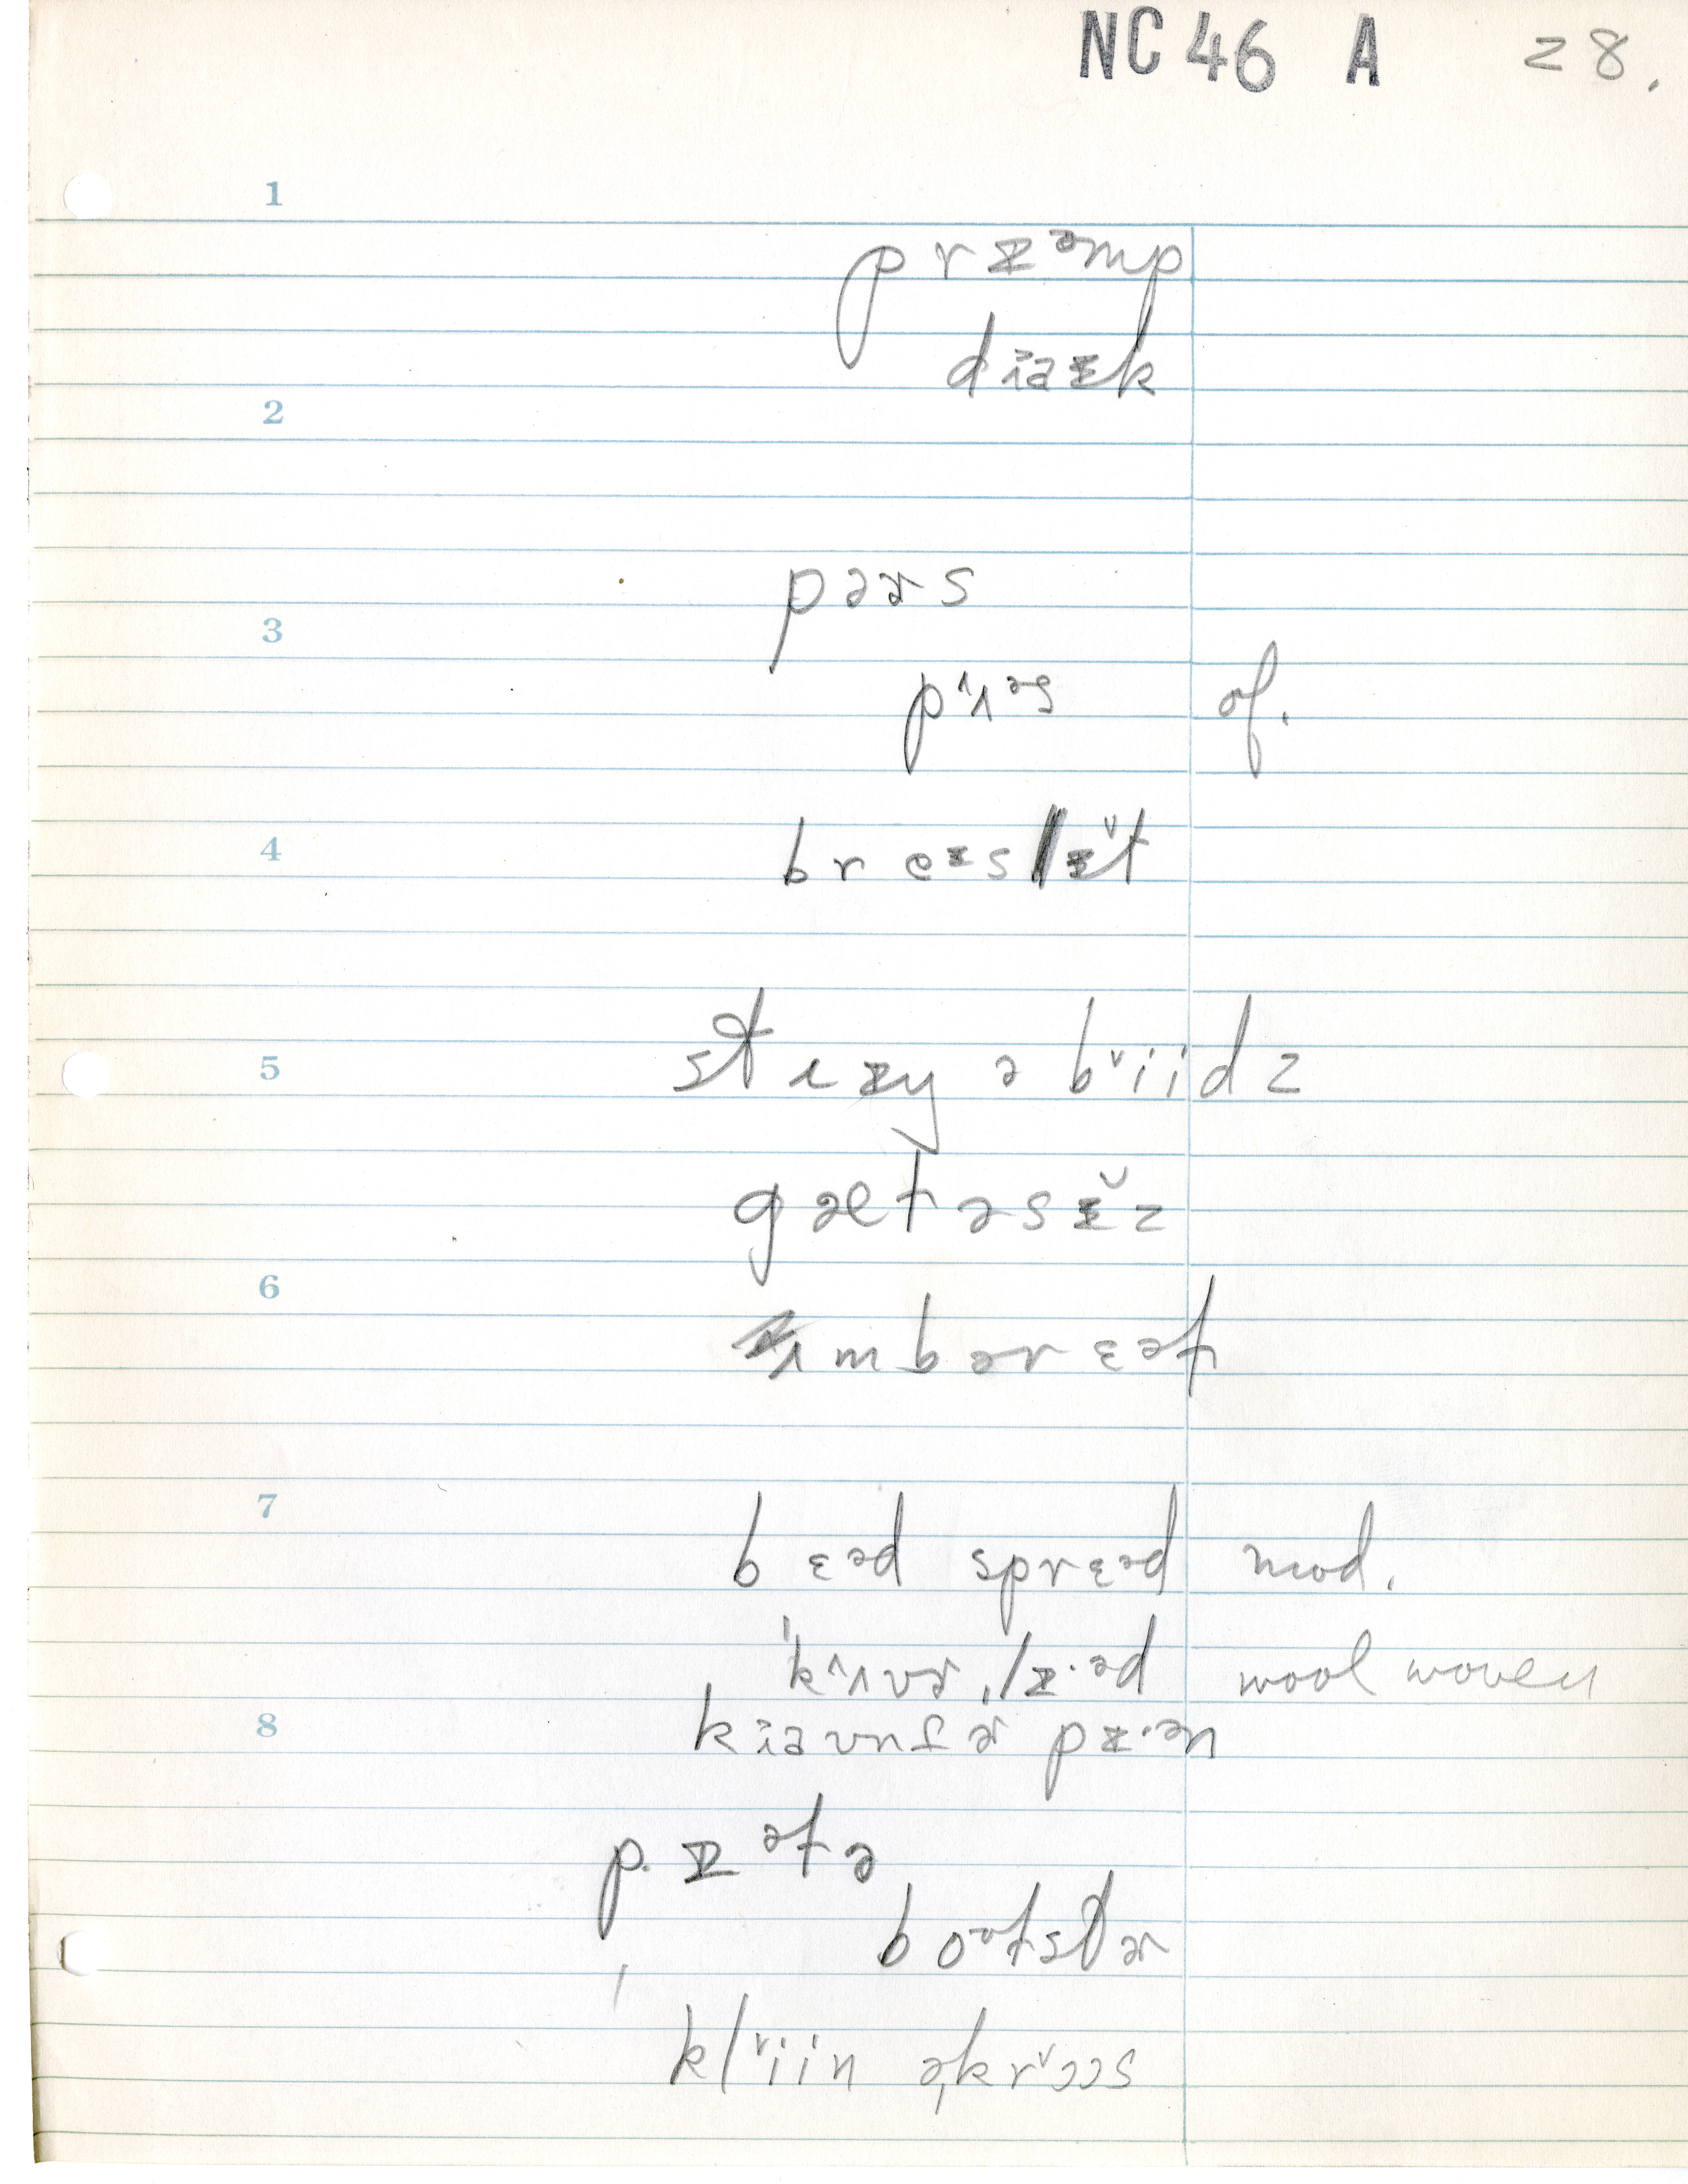 NC 46 A 28.
1
prɪᵊmp
dɪaɪk
2
pərs
3
pʌᵊs of.
4
breɪslɪ̆t
5
strɪŋ ə bˇiidz
gætəsɪ̆z
6
ʌmbərɛət
7
bɛᵊd sprɛᵊd mod.
ˈkʌvɚˌlɪ·ᵊd wool woven
8
kɪaʊnfɚ pɪ·ᵊn
pɪᵊtə
boᵒtstɚ
klˇiin əˌkrˇɔɔs